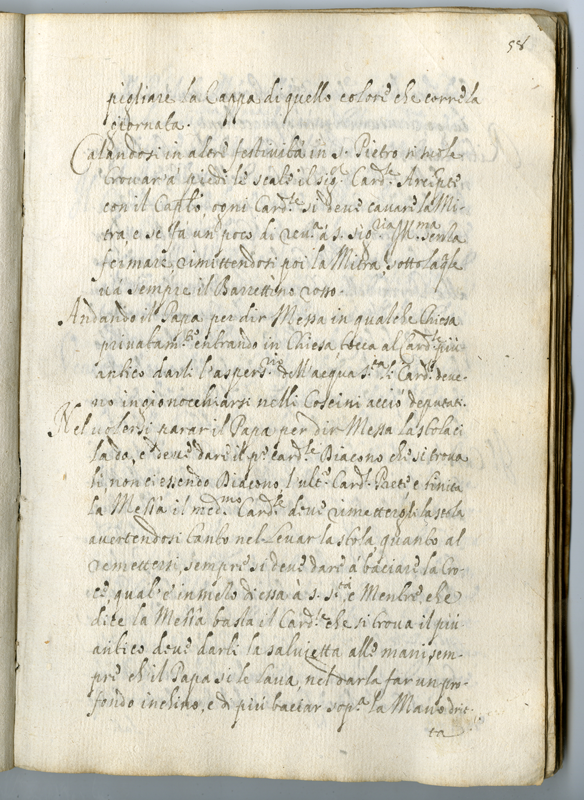 58
pigliare la Cappa di quello colore che corre la
giornata.
Calandosi in altre festività in S. Pietro si suole
trovar à piedi le scale il sig.re Card.le Arcipte
con il Cap.lo, ogni Card.le si deve cavare la Mi-
tra, e se fa un poco di rev.a à S. Sig.ria Ill.ma senza
fermare, rimettendosi poi la Mitra sotto la q.le
và sempre il Barrettino rosso.
Andando il Papa per dir Messa in qualche Chiesa
privatam.te entrando in Chiesa tocca al Card.le più
antico darli l'aspers.rio dell'acqua s.ta, li Card.li deve-
no ingionocchiarsi nelli Coscini acciò deputati.
Nel volersi parar il Papa per dir Messa la stola ci
la da, e deve dare il p.o Card.le Diacono che si trova
lì, non ci essendo Diacono l'ult.o Card.l Prete e finita
la Messa il med.mo Card.le deve rimettergli la stola
avertendosi tanto nel levar la stola quanto al
remettersi, sempre si deve dare à baciare la Cro-
ce, qual'è in melo di essa à S. S.tà, e Mentre che
dice la Messa basta il Card.le che si trova il più
antico deve darli la salvietta alle mani sem-
pre ch'il Papa si le lava, nel darla far un pro-
fondo inchino, e di più baciar sop.a la Mano drit-
ta